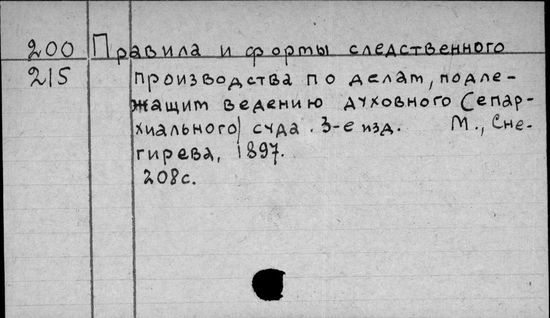 200 Правила и формы следственного
215 производства по делам, подле-
жащим ведению духовного (епар-
хиального) суда. 3-е изд. М., Сне-
гирева, 1897.
208с.